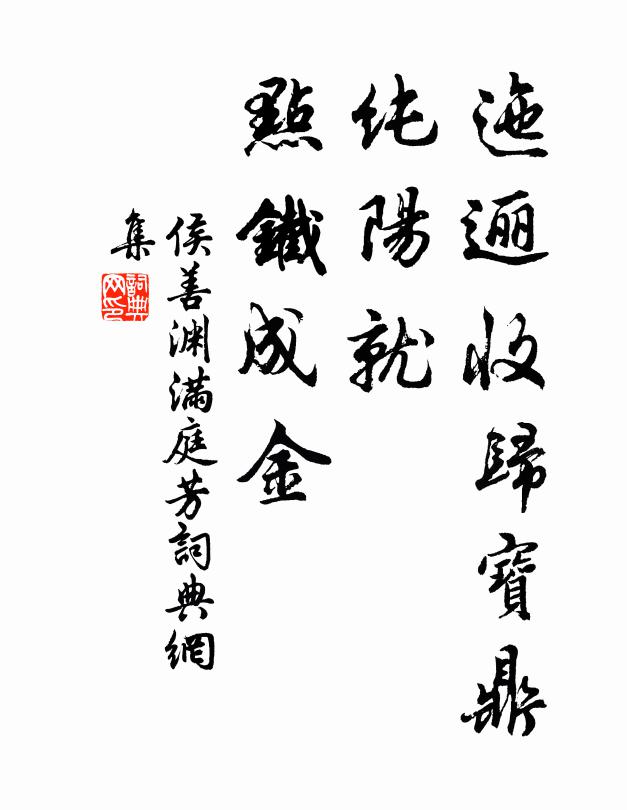 迤逦收歸寶鼎
純陽就
點鐵成金
侯善渊滿庭芳詞典網
集
詞典
网印